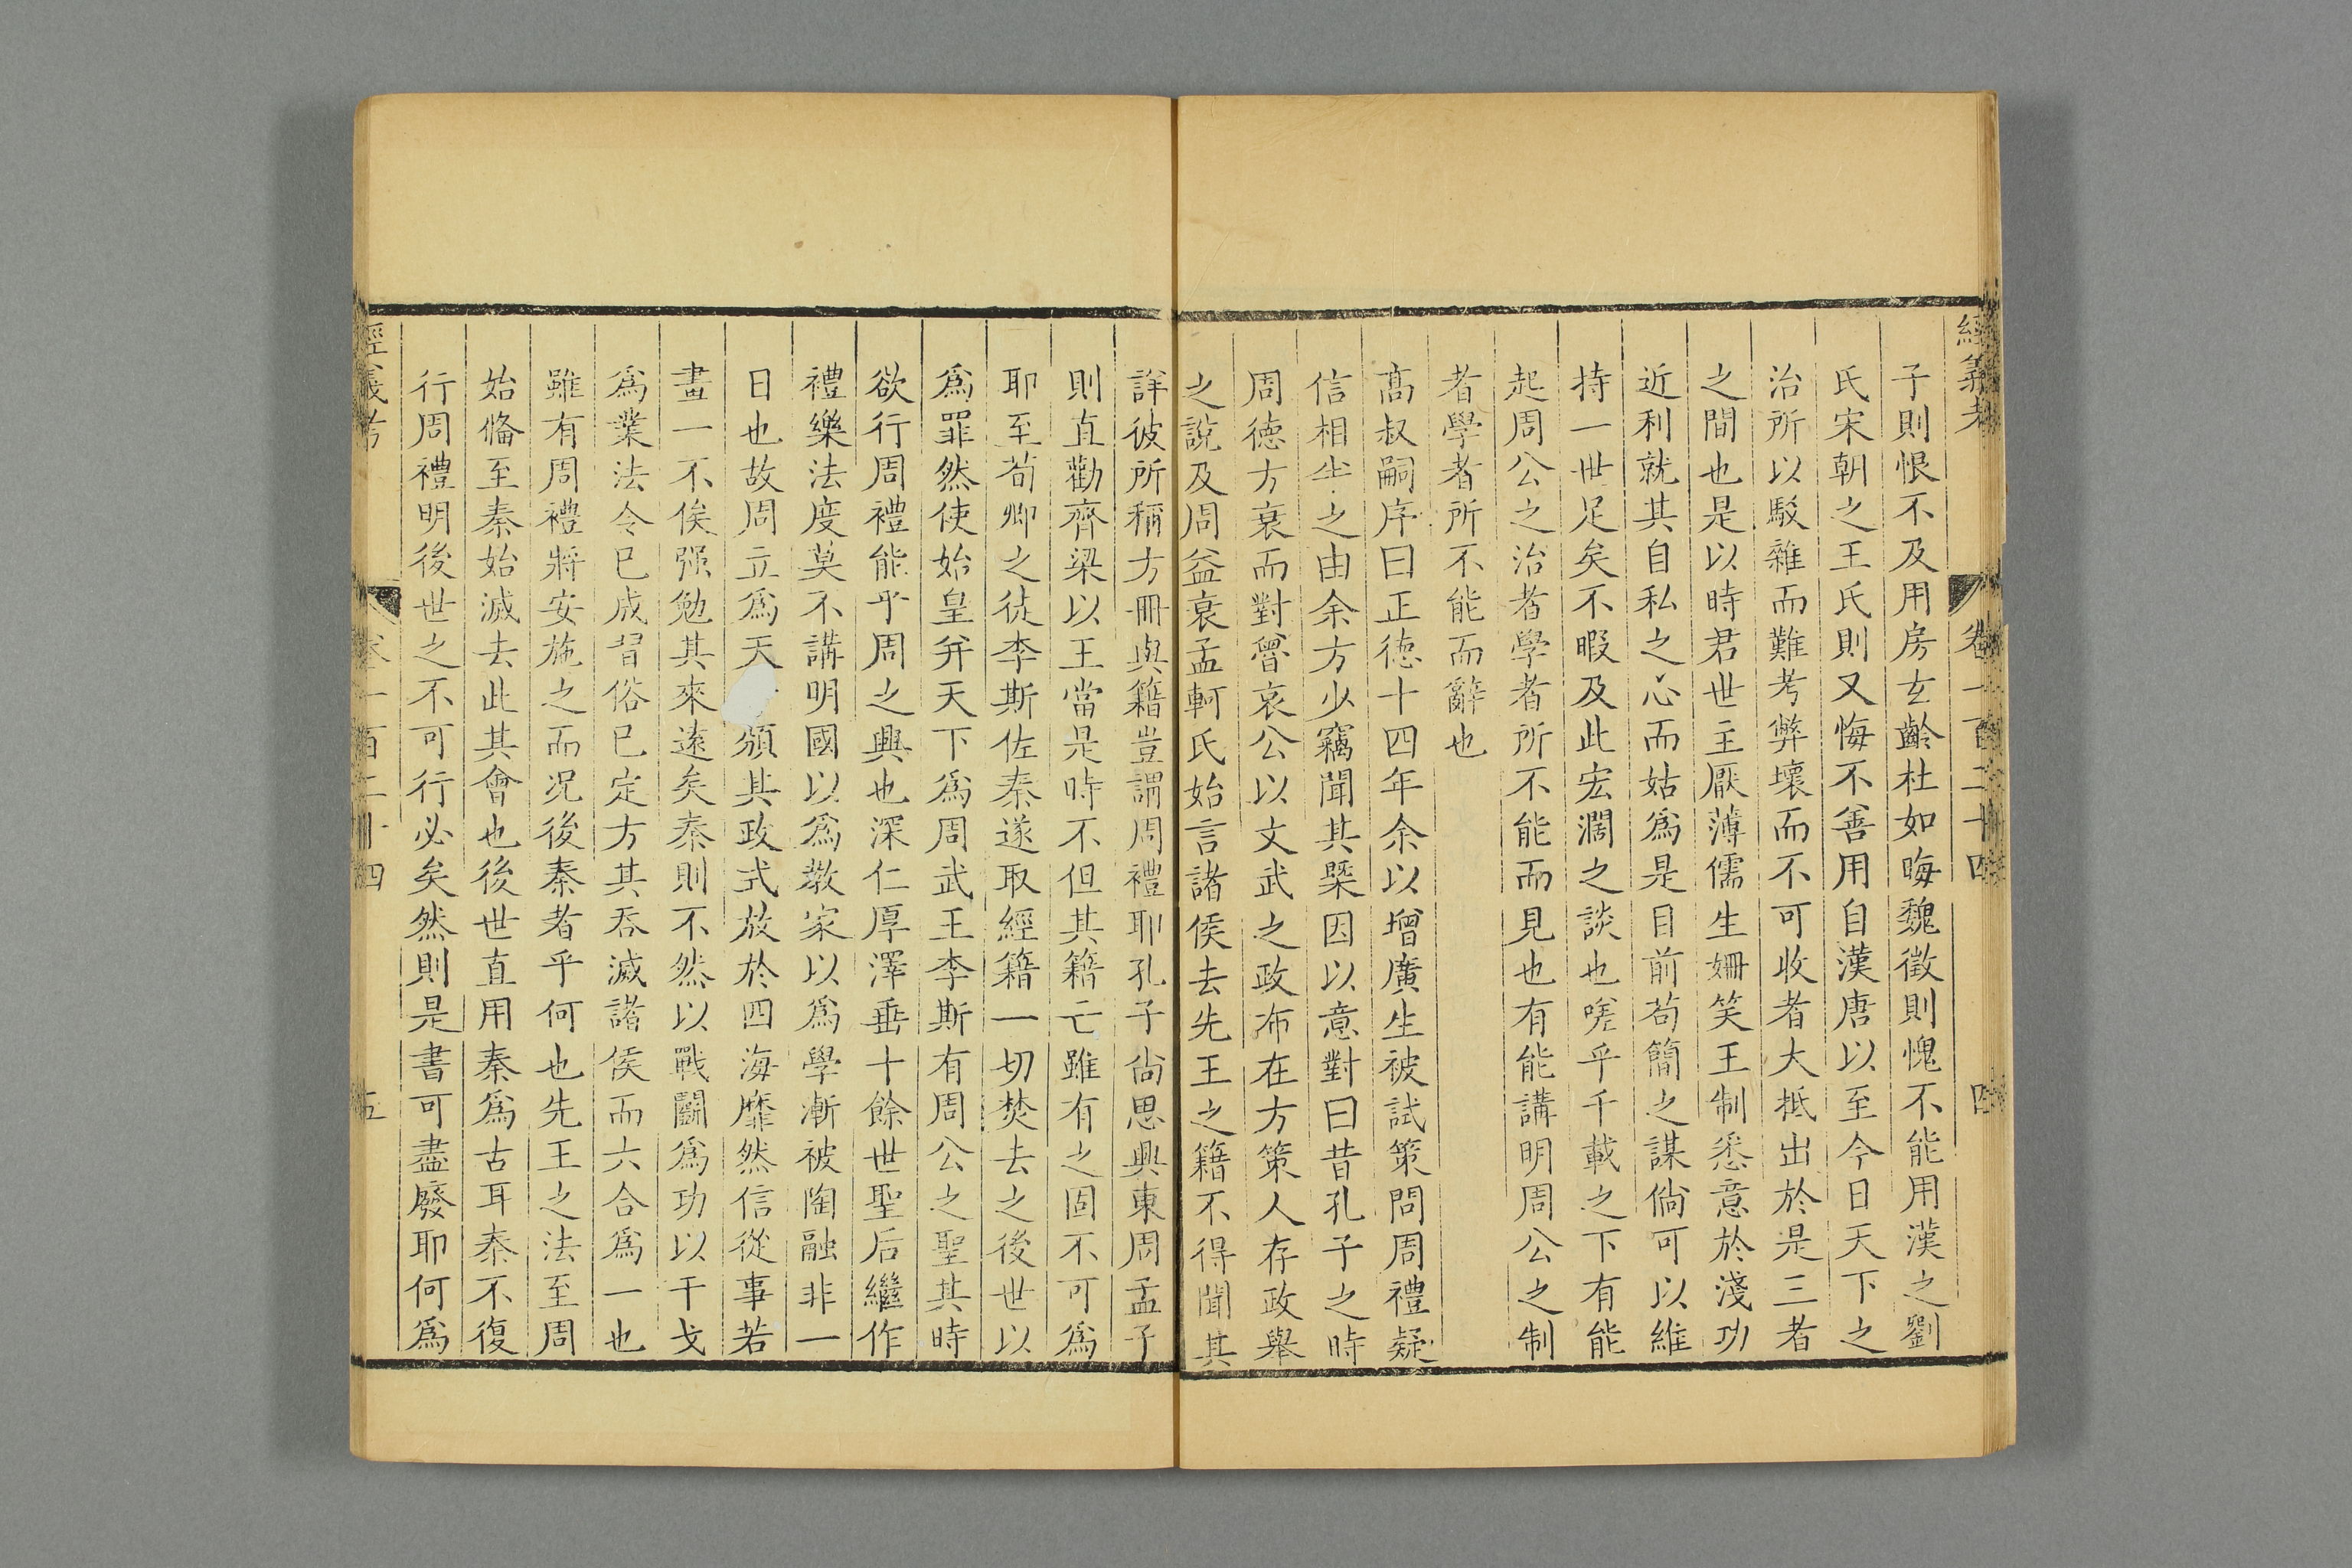 經義考 卷一百二十四 四
子則恨不及用房玄齡杜如晦魏徵則愧不能用漢之劉
氏宋朝之王氏則又悔不善用自漢唐以至今日天下之
治所以駁雜而難考弊壞而不可收者大抵出於是三者
之間也是以時君世主厭薄儒生姍笑王制悉意於淺功
近利就其自私之心而姑爲是目前苟簡之謀倘可以維
持一世足矣不暇及此宏濶之談也嗟乎千載之下有能
起周公之治者學者所不能而見也有能講明周公之制
者學者所不能而辭也
髙叔嗣序曰正徳十四年余以增廣生被試策問周禮疑
信相半之由余方少竊聞其槩因以意對曰昔孔子之時
周徳方衰而對魯哀公以文武之政布在方策人存政舉
之說及周益衰孟軻氏始言諸侯去先王之籍不得聞其
詳彼所稱方冊與籍豈謂周禮耶孔子尙思興東周孟子
則直勸齊梁以王當是時不但其籍亡雖有之固不可爲
耶至荀卿之徒李斯佐秦遂取經籍一切焚去之後世以
爲罪然使始皇并天下爲周武王李斯有周公之聖其時
欲行周禮能乎周之興也深仁厚澤垂十餘世聖后繼作
禮樂法度莫不講明國以爲敎家以爲學漸被陶融非一
日也故周立爲天頒其政式放於四海靡然信從事若
畫一不俟强勉其來逺矣秦則不然以戰鬭爲功以干戈
爲業法令已成習俗已定方其吞滅諸侯而六合爲一也
雖有周禮將安施之而况後秦者乎何也先王之法至周
始備至秦始滅去此其會也後世直用秦爲古耳秦不復
行周禮明後世之不可行必矣然則是書可盡廢耶何爲
經義考 卷一百二十四 五